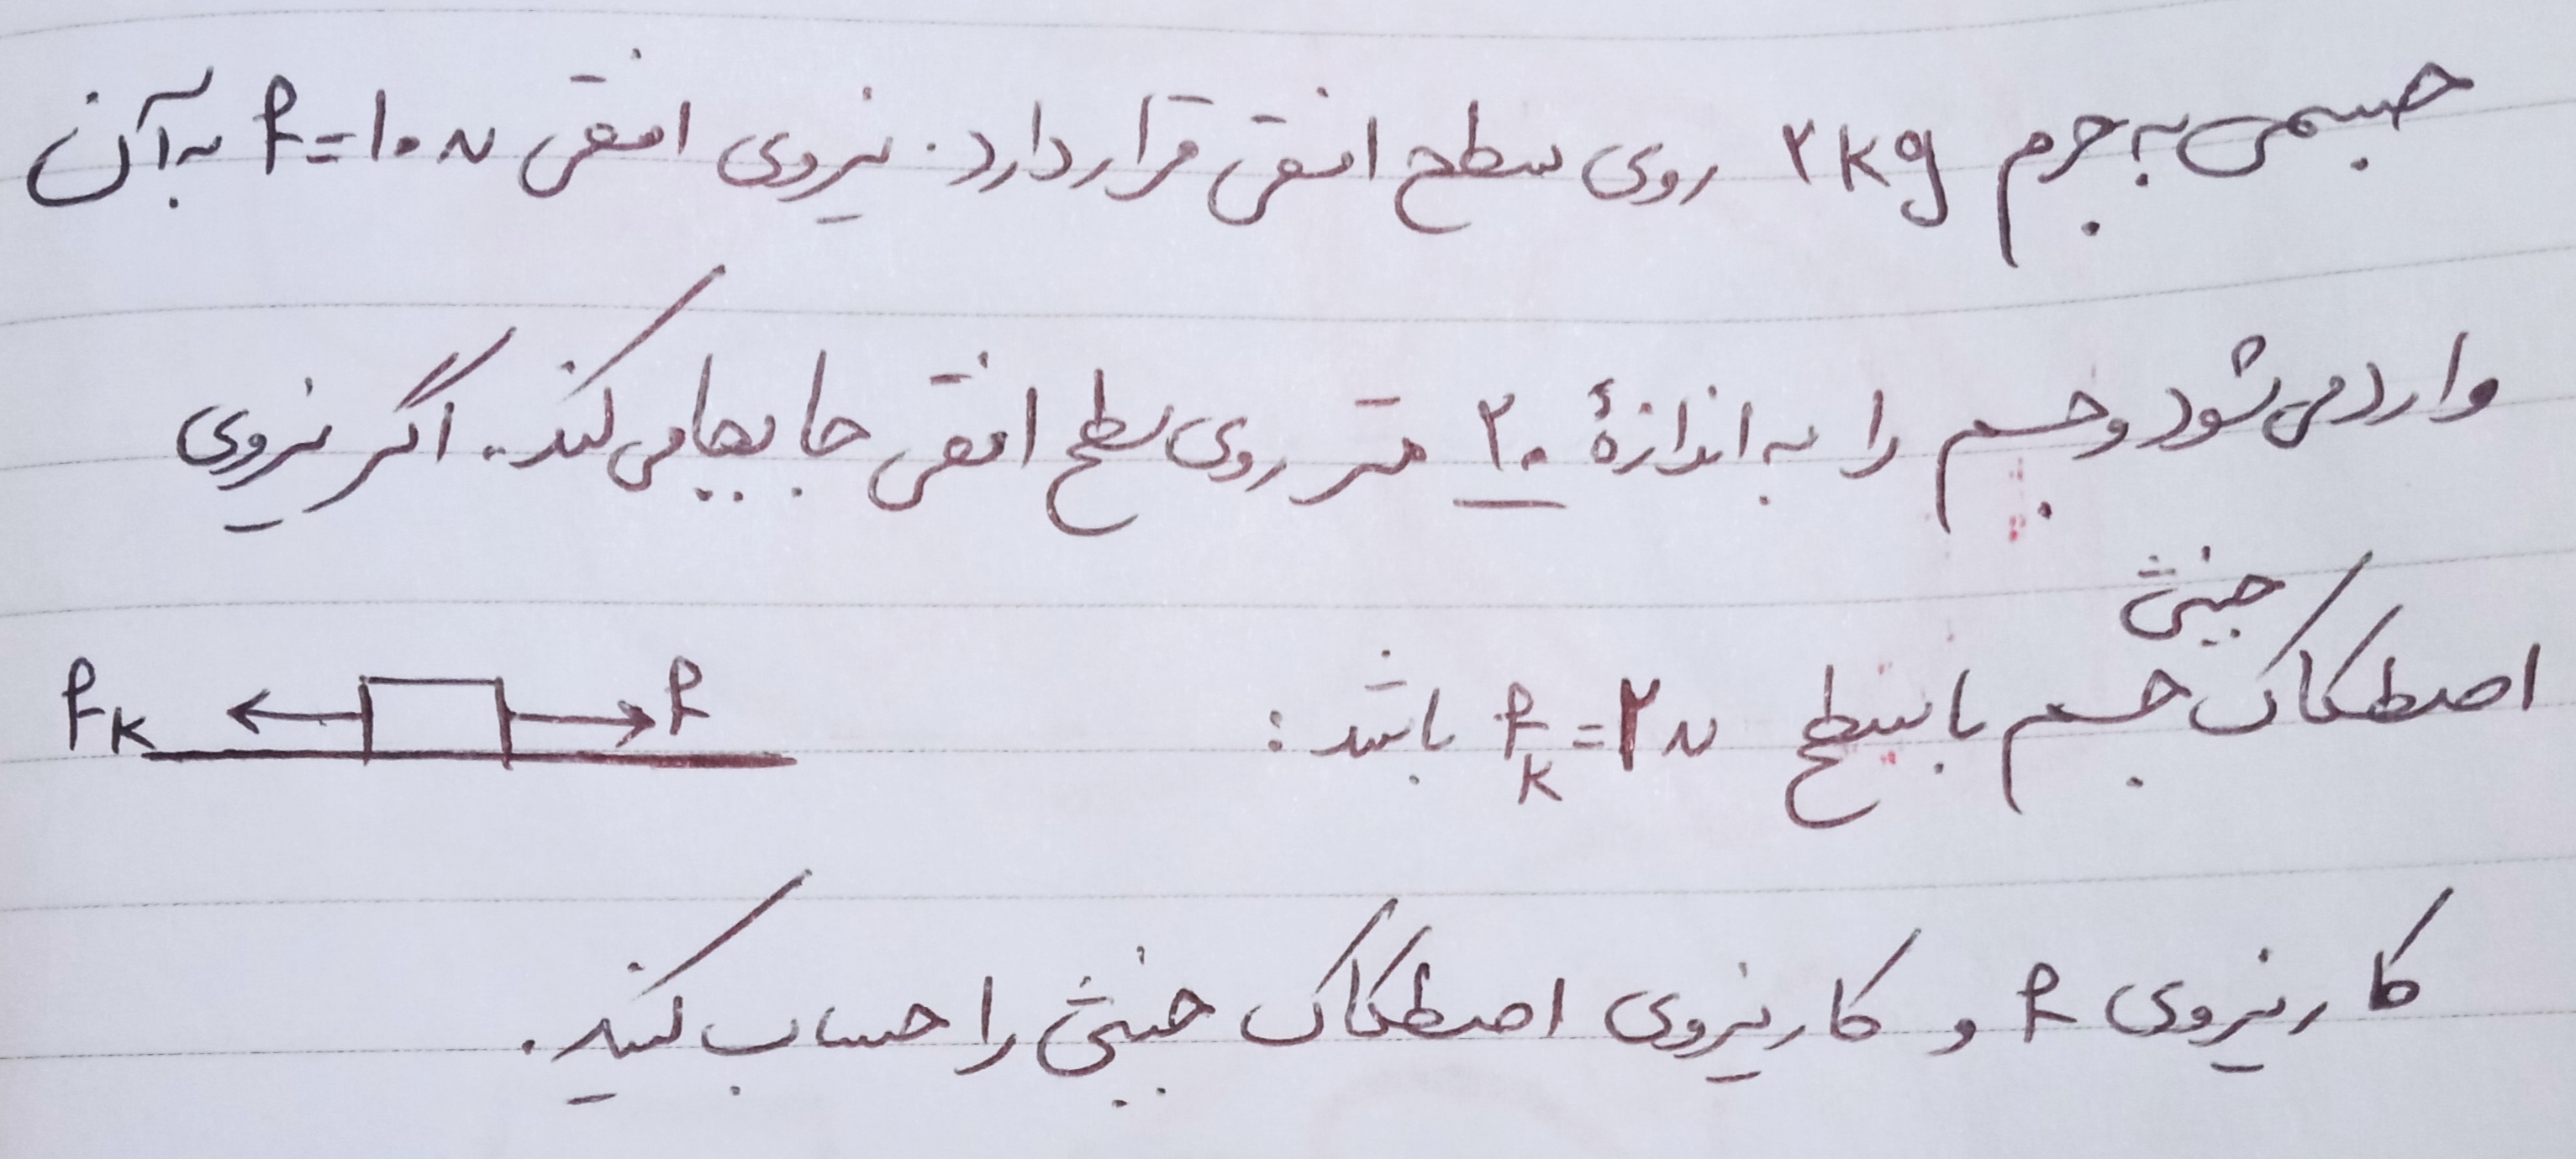 جسمی به جرم ۲kg روی سطح افقی قرار دارد. نیروی افقی F=۱۰N به آن
وارد می‌شود و جسم را به اندازهٔ ۲۰ متر روی سطح افقی جابجا می‌کند. اگر نیروی
جنبشی
اصطکاک جسم با سطح fk=۲N باشد:
fk F
کار نیروی F و کار نیروی اصطکاک جنبشی را حساب کنید.